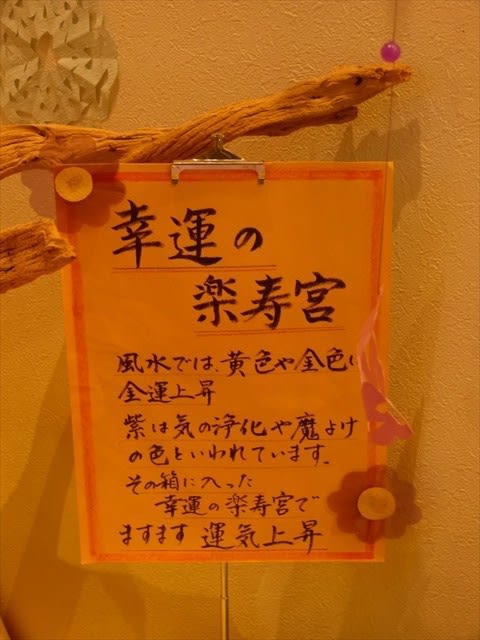 幸運の
楽寿宮
風水では、黄色や金色は
金運上昇
紫は気の浄化や魔よけ
の色といわれています。
その箱に入った
幸運の楽寿宮で
ますます 運気上昇